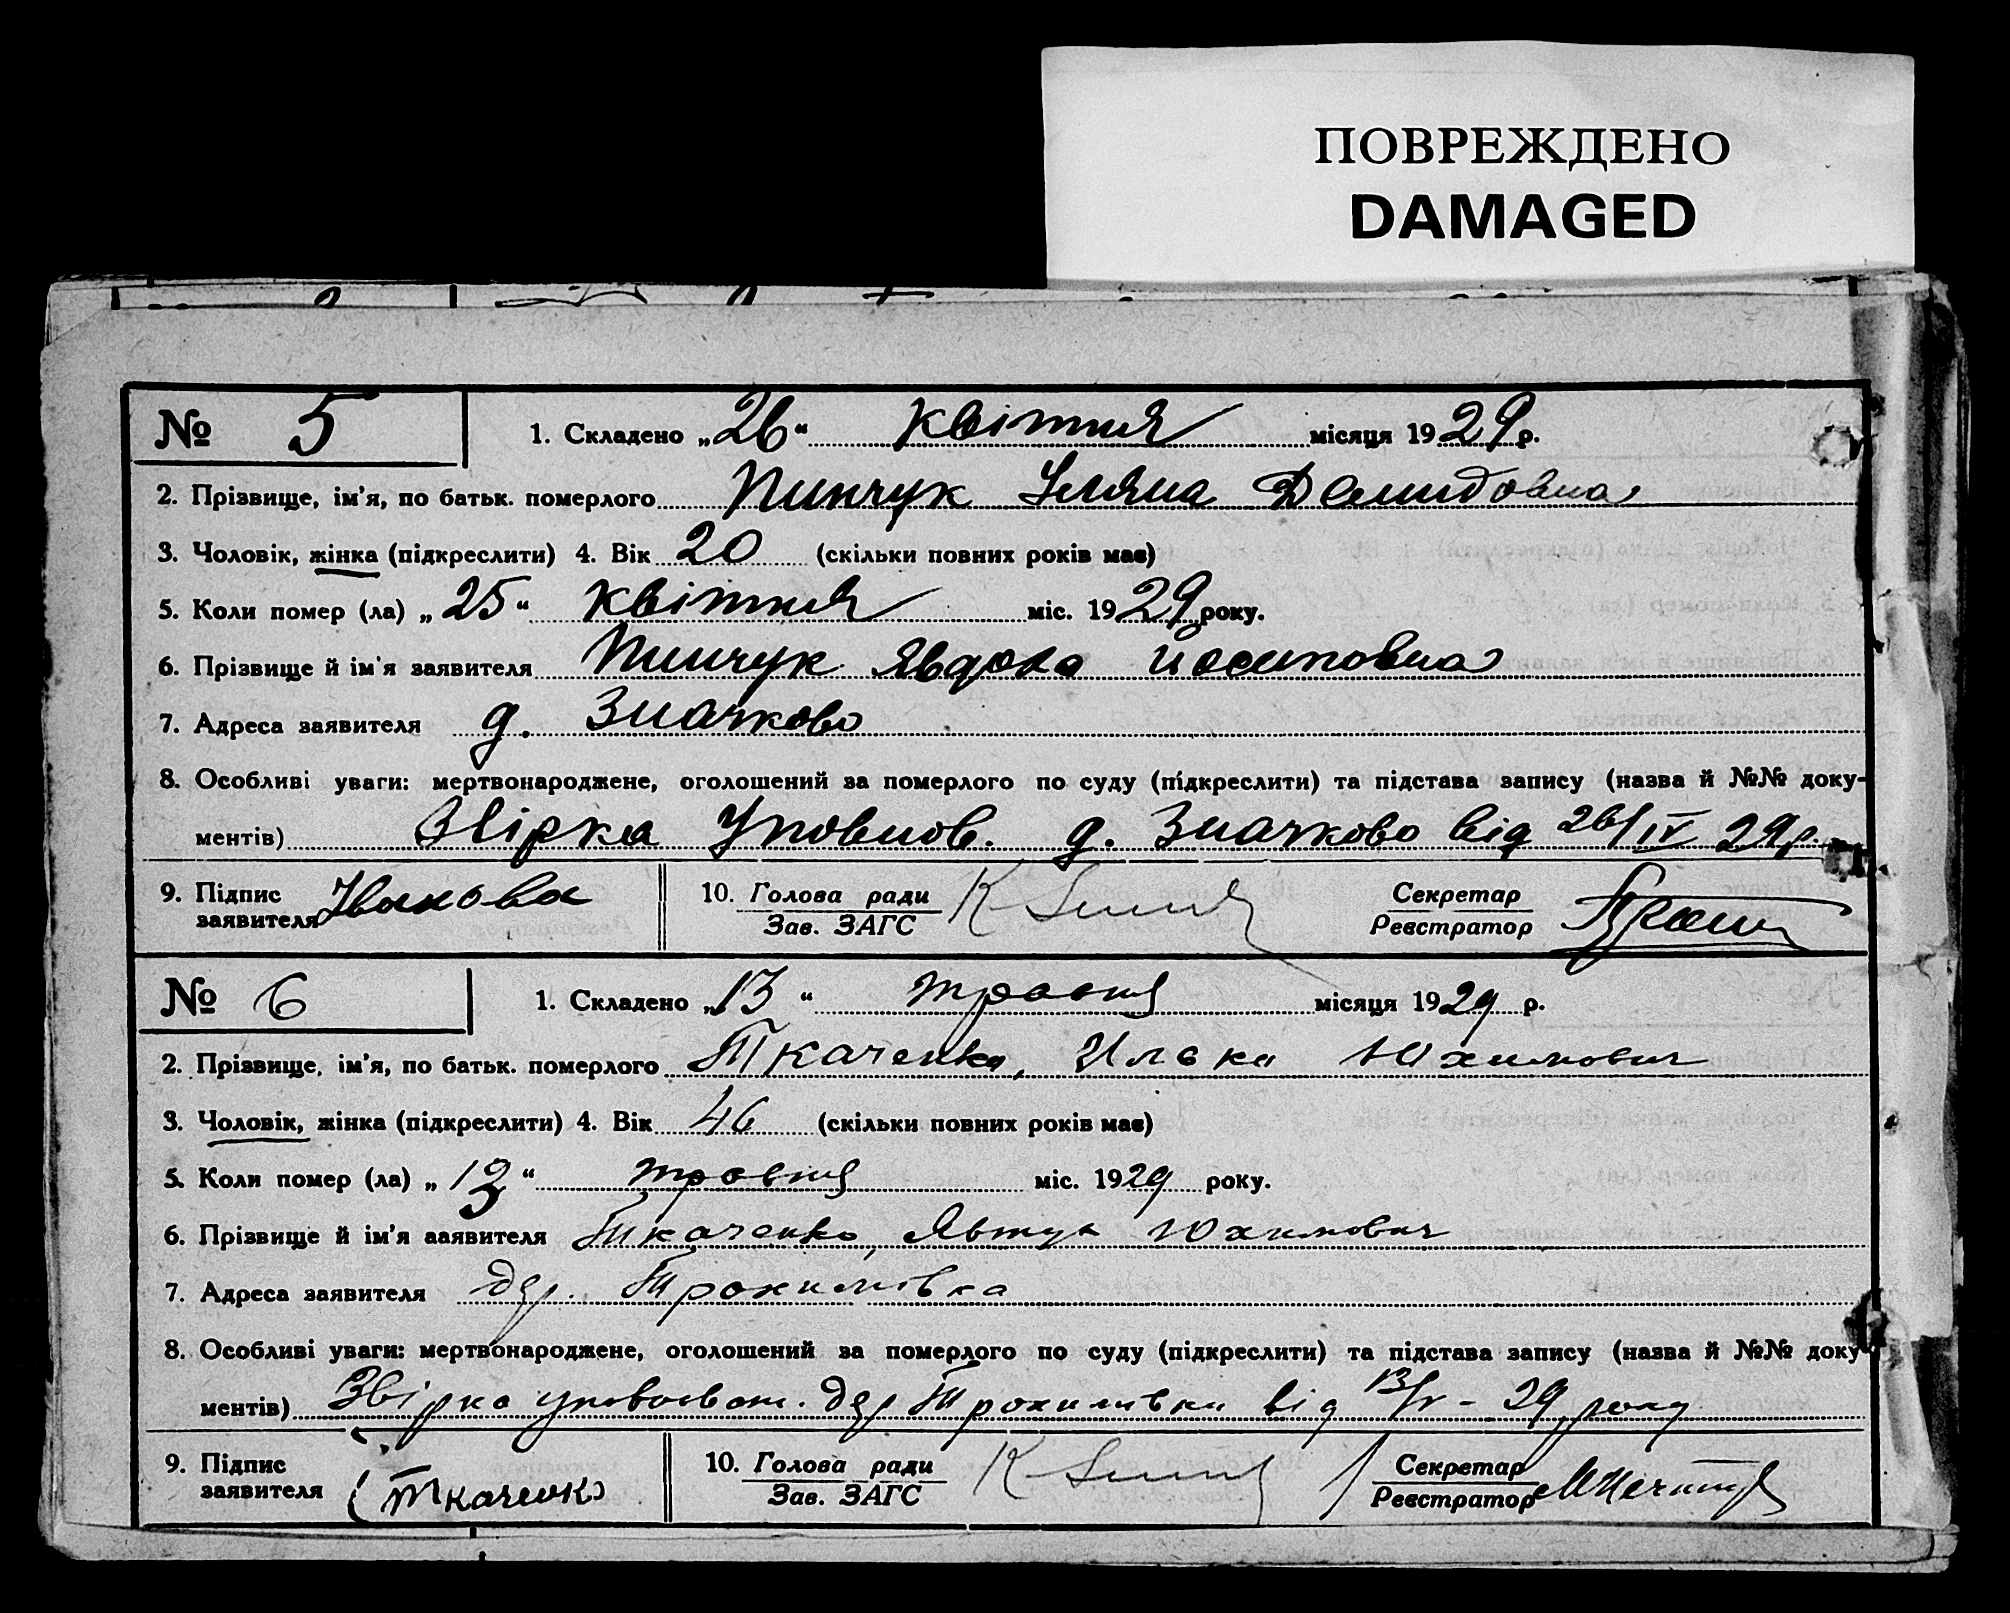 ПОВРЕЖДЕНО
DAMAGED
№ 5 1. Складено „26“ квітня місяця 1929 р.
2. Прізвище, ім'я, по батьк. померлого Пинчук Уляна Демидовна
3. Чоловік, жінка (підкреслити) 4. Вік 20 (скільки повних років має)
5. Коли помер (ла) „25“ квітня міс. 1929 року.
6. Прізвище й ім'я заявителя Пинчук Явдоха Йосиповна
7. Адреса заявителя д. Значково
8. Особливі уваги: мертвонароджене, оголошений за померлого по суду (підкреслити) та підстава запису (назва й №№ доку-
ментів) Звірка Уповнов. д. Значково від 26/IV 29р.
9. Підпис 10. Голова ради Секретар
заявителя Зав. ЗАГС Реєстратор
№ 6 1. Складено „13“ травня місяця 1929 р.
2. Прізвище, ім'я, по батьк. померлого Ткаченко, Илька Юхимович
3. Чоловік, жінка (підкреслити) 4. Вік 46 (скільки повних років має)
5. Коли помер (ла) „13“ травня міс. 1929 року.
6. Прізвище й ім'я заявителя Ткаченко, Явтух Юхимович
7. Адреса заявителя дер. Трохимівка
8. Особливі уваги: мертвонароджене, оголошений за померлого по суду (підкреслити) та підстава запису (назва й №№ доку
ментів) Звірка дер Трохимівки від 13/V - 29 року
9. Підпис 10. Голова ради Секретар
заявителя (Ткаченко) Зав. ЗАГС Реєстратор